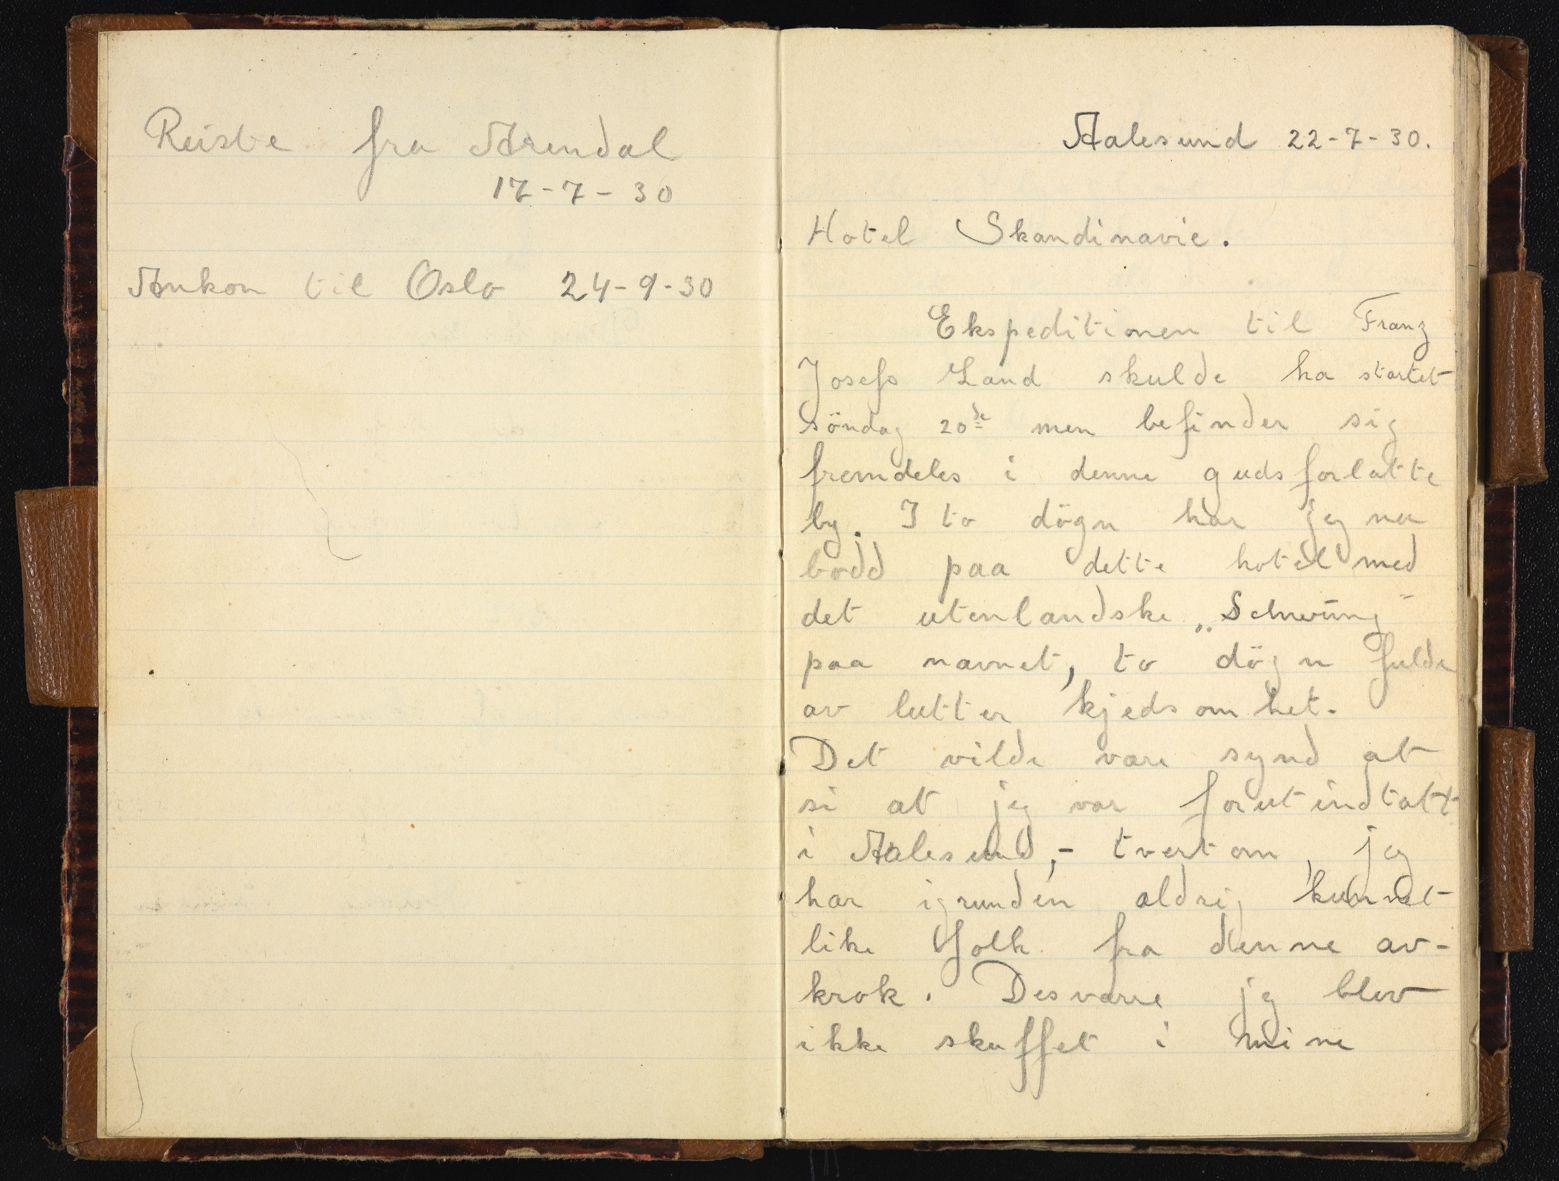 Reiste fra Arendal
17-7-30
Ankom til Oslo 24-9-30
Aalesund 22-7-30.
Hotel Skandinavie.
Ekspeditionen til Franz
Josefs Land skulde ha startet
söndag 20de men befinder sig
fremdeles i denne gudsforlatte
by. I to dögn har jeg nu
bodd paa dette hotel med
det utenlandske „Schwung“
paa navnet, to dögn fulde
av lutter kjedsomhet.
Det vilde være synd at
si at jeg var forutindtatt
i Aalesund,- tvertom, jeg
har igrunden aldrig kunnet
like folk fra denne av-
krok. Desværre jeg blev
ikke skuffet i mine